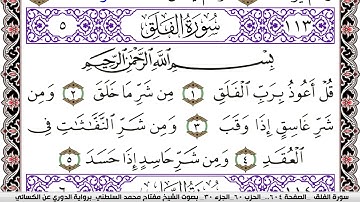 ١١٣ سُورَةُ الفَلَقِ ٥
بِسۡمِ ٱللَّهِ ٱلرَّحۡمَٰنِ ٱلرَّحِيمِ
قُلۡ أَعُوذُ بِرَبِّ ٱلۡفَلَقِ ١ مِن شَرِّ مَا خَلَقَ ٢ وَمِن
شَرِّ غَاسِقٍ إِذَا وَقَبَ ٣ وَمِن شَرِّ ٱلنَّفَّٰثَٰتِ فِي
ٱلۡعُقَدِ ٤ وَمِن شَرِّ حَاسِدٍ إِذَا حَسَدَ ٥
سورة الفلق الصفحة ٦٠٤... الحزب ٦٠ الجزء ٣٠ بصوت الشيخ مفتاح محمد السلطني برواية الدوري عن الكسائي